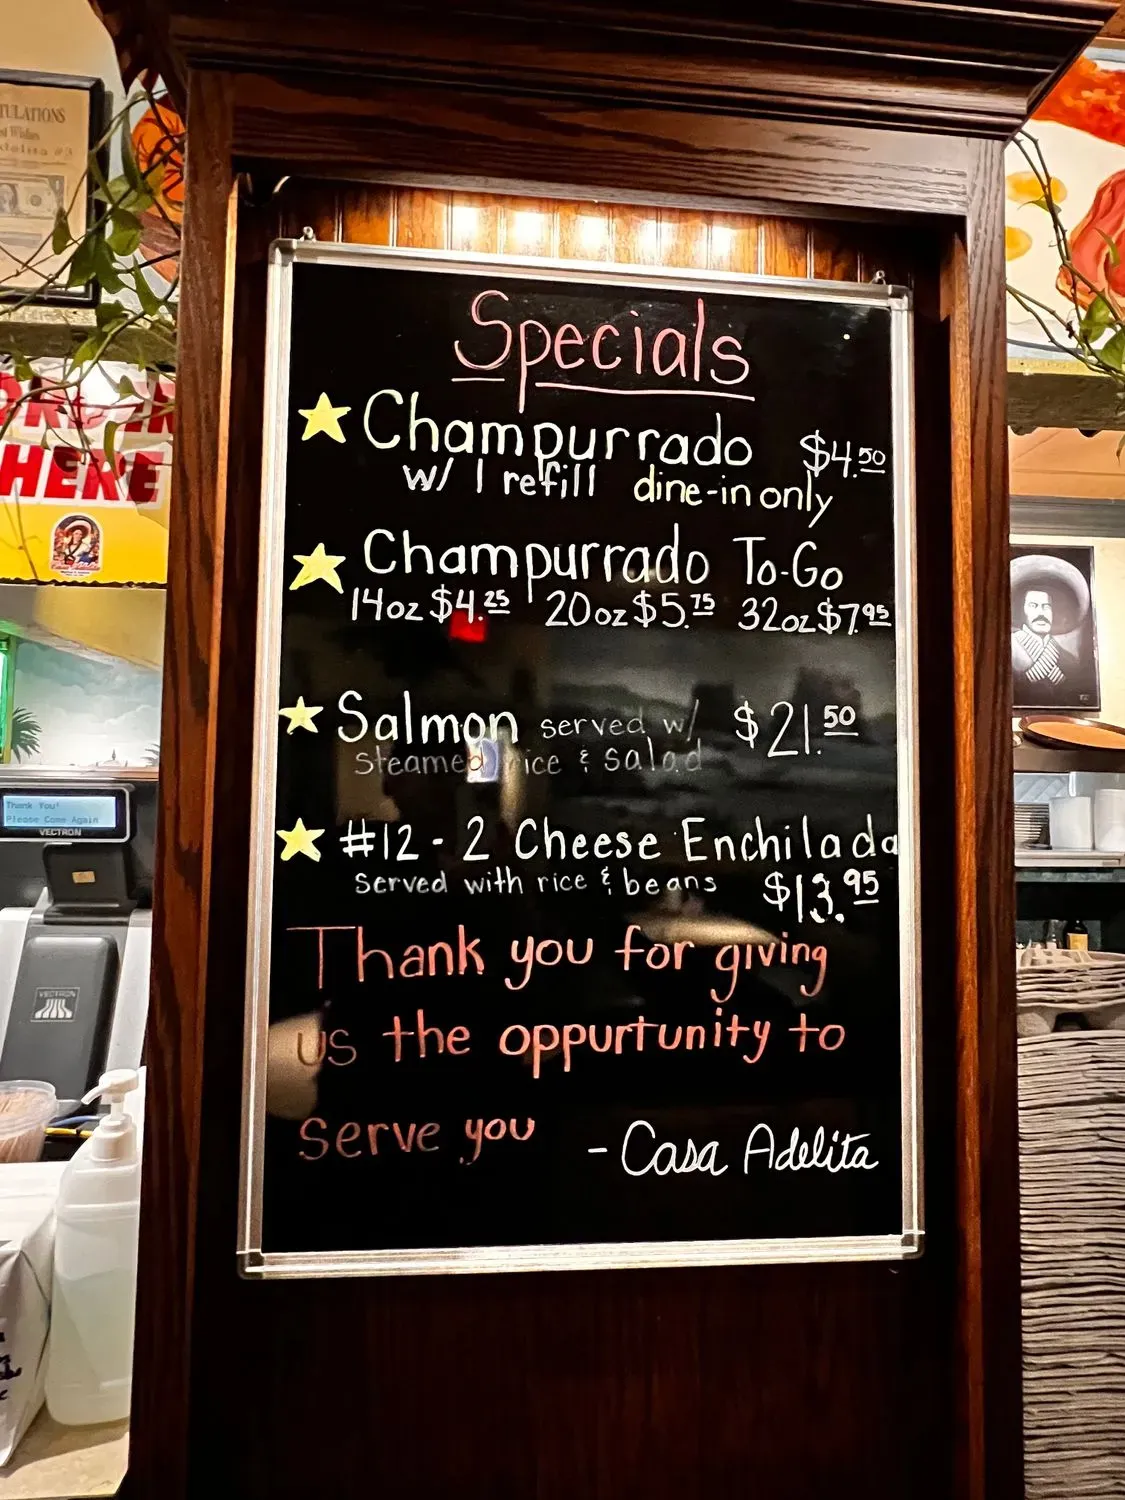 TULATIONS
Wishes
#3
ORDER
HERE
Thank You!
Please Come Again
VECTRON
VECTRON
Specials
Champurrado $4.50
w/ 1 refill dine-in only
Champurrado To-Go
14oz $4.25 20oz $5.75 32oz $7.95
Salmon served w/ $21.50
steamed rice & salad
#12 - 2 Cheese Enchilada
Served with rice & beans $13.95
Thank you for giving
us the oppurtunity to
serve you - Casa Adelita